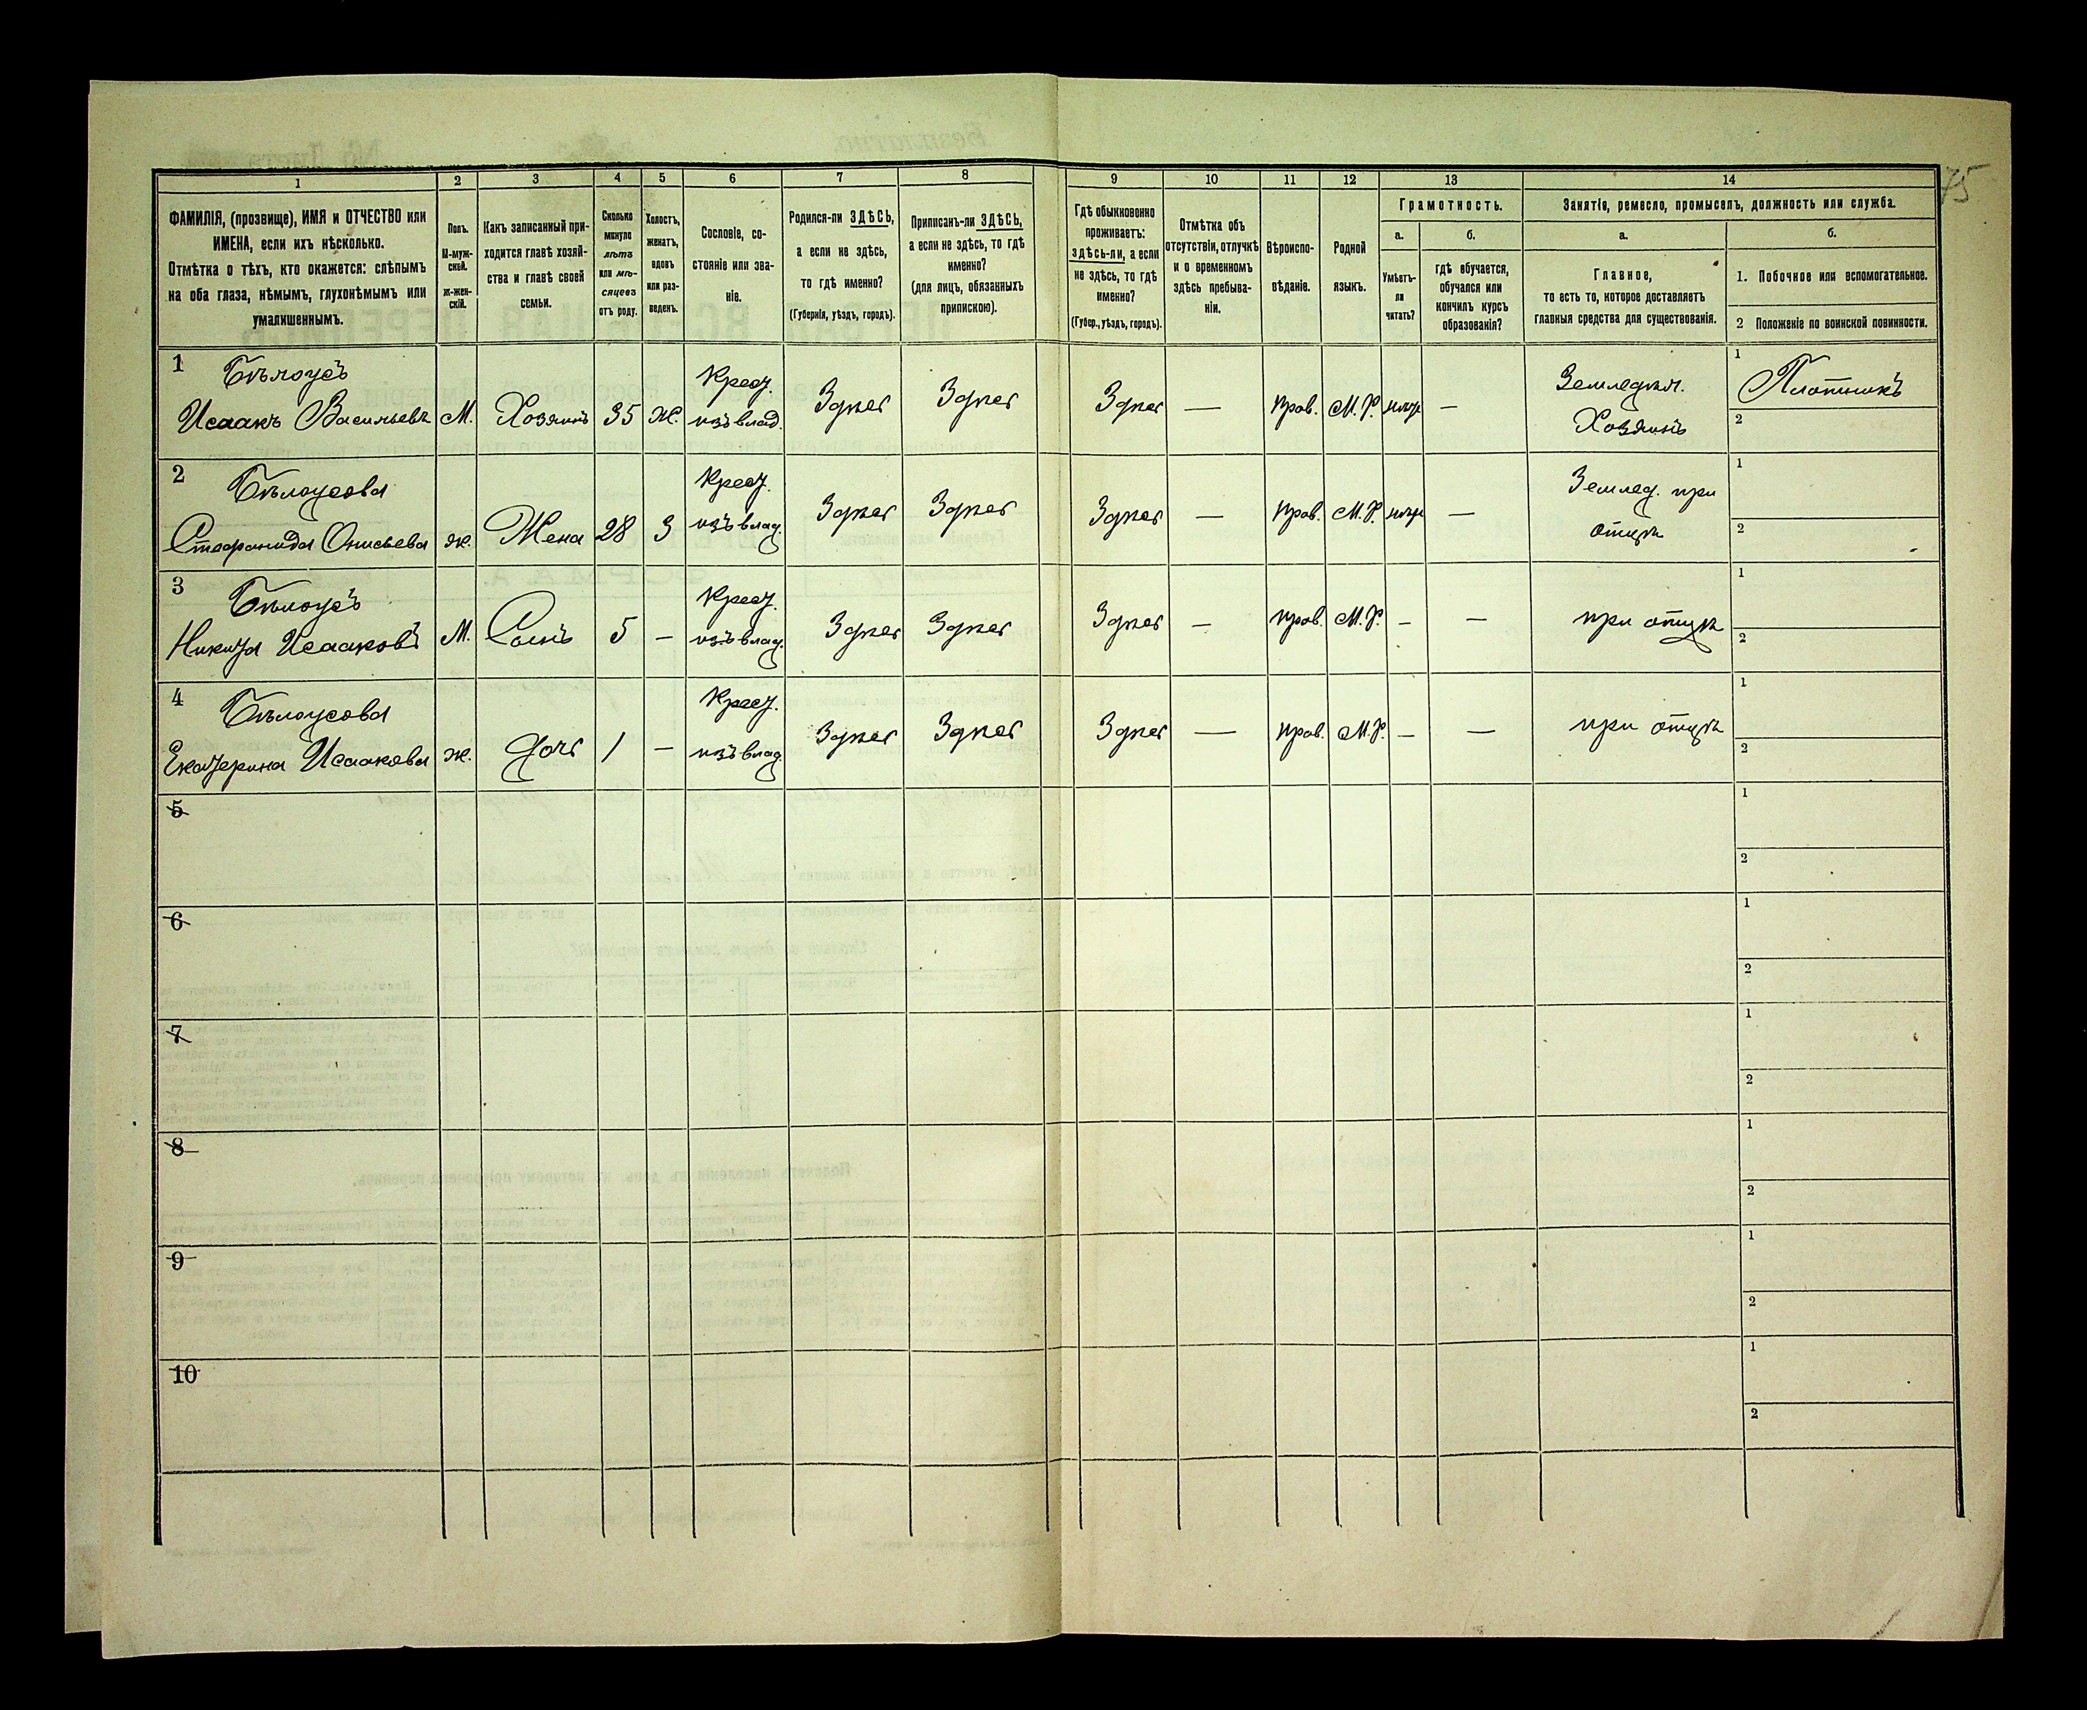 75
1 2 3 4 5 6 7 8 9 10 11 12 13 14
ФАМИЛІЯ, (прозвище), ИМЯ и ОТЧЕСТВО или
ИМЕНА, если ихъ нѣсколько.
Отмѣтка о тѣхъ, кто окажется: слѣпымъ
на оба глаза, нѣмымъ, глухонѣмымъ или
умалишеннымъ.
Полъ.
М-муж-
ской.
ж-жен-
скій.
Какъ записанный при-
ходится главѣ хозяй-
ства и главѣ своей
семьи.
Сколько
минуло
лѣтъ
или мѣ-
сяцевъ
отъ роду.
Холостъ,
женатъ,
вдовъ
или раз-
веденъ.
Сословіе, со-
стояніе или зва-
ніе.
Родился-ли ЗДѢСЬ,
а если не здѣсь,
то гдѣ именно?
(Губернія, уѣздъ, городъ).
Приписанъ-ли ЗДѢСЬ,
а если не здѣсь, то гдѣ
именно?
(для лицъ, обязанныхъ
припискою).
Гдѣ обыкновенно
проживаетъ:
здѣсь-ли, а если
не здѣсь, то гдѣ
именно?
(Губер., уѣздъ, городъ).
Отмѣтка объ
отсутствіи, отлучкѣ
и о временномъ
здѣсь пребыва-
ніи.
Вѣроиспо-
вѣданіе.
Родной
языкъ.
Грамотность.
а.
Умѣетъ-
ли
читать?
б.
гдѣ обучается,
обучался или
кончилъ курсъ
образованія?
Занятіе, ремесло, промыселъ, должность или служба.
а.
Главное,
то есть то, которое доставляетъ
главныя средства для существованія.
б.
1. Побочное или вспомогательное.
2 Положеніе по воинской повинности.
1 Бѣлоусъ Крест. Земледѣл. 1 Плотникъ
Исаакъ Васильевъ М. Хозяинъ 35 Ж. изъ влад. Здѣсь Здѣсь Здѣсь — прав. М.Р. нѣтъ — Хозяинъ 2
2 Бѣлоусова Крест. Землед. при 1
Стефанида Онисьева ж. Жена 28 З изъ влад. Здѣсь Здѣсь Здѣсь — прав. М.Р. нѣтъ — отцѣ 2
3 Бѣлоусъ Крест. 1
Никита Исааковъ М. Сынъ 5 — изъ влад. Здѣсь Здѣсь Здѣсь — прав. М.Р. — — при отцѣ 2
4 Бѣлоусова Крест. 1
Екатерина Исаакова ж. Дочь 1 — изъ влад. Здѣсь Здѣсь Здѣсь — прав. М.Р. — — при отцѣ 2
5 1
2
6 1
2
7 1
2
8 1
2
9 1
2
10 1
2